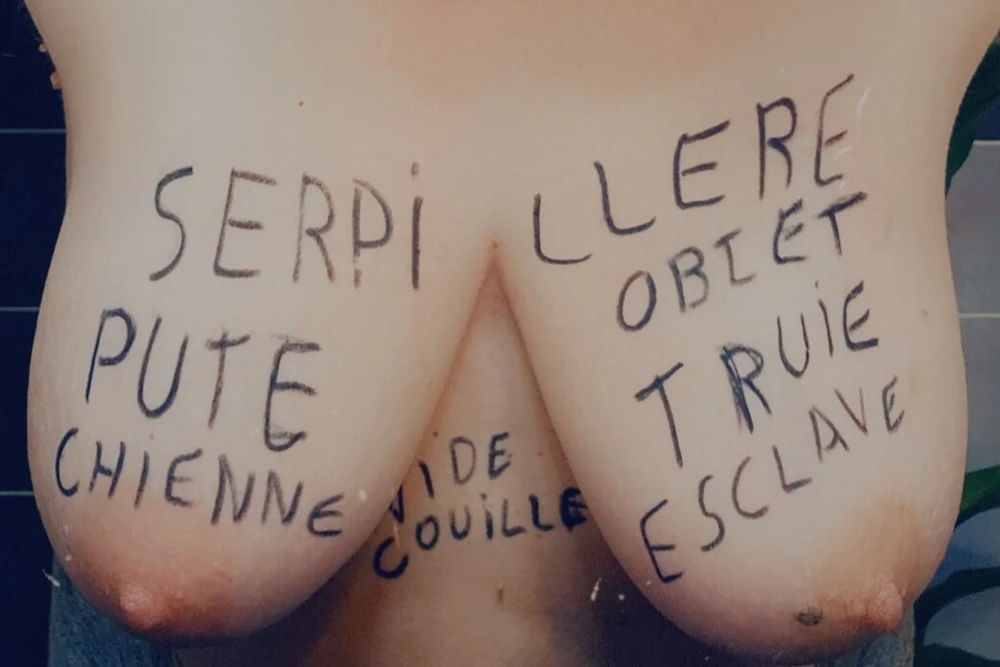 SERPILLERE
OBIET
PUTE
TRUIE
CHIENNE
ESCLAVE
VIDE
COUILLE